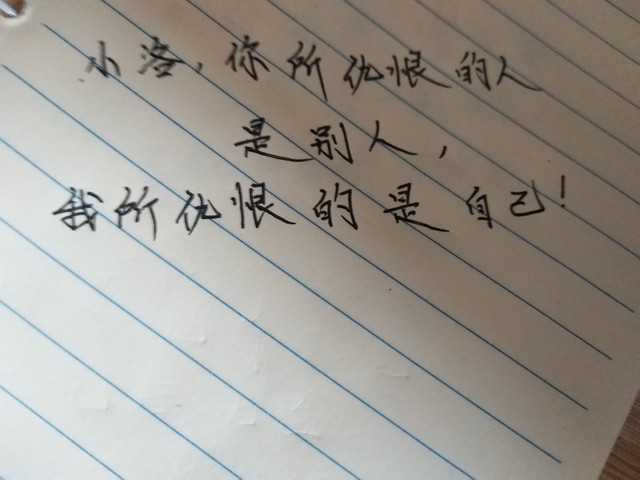 小洛，你所仇恨的人
是别人，
我所仇恨的是自己！